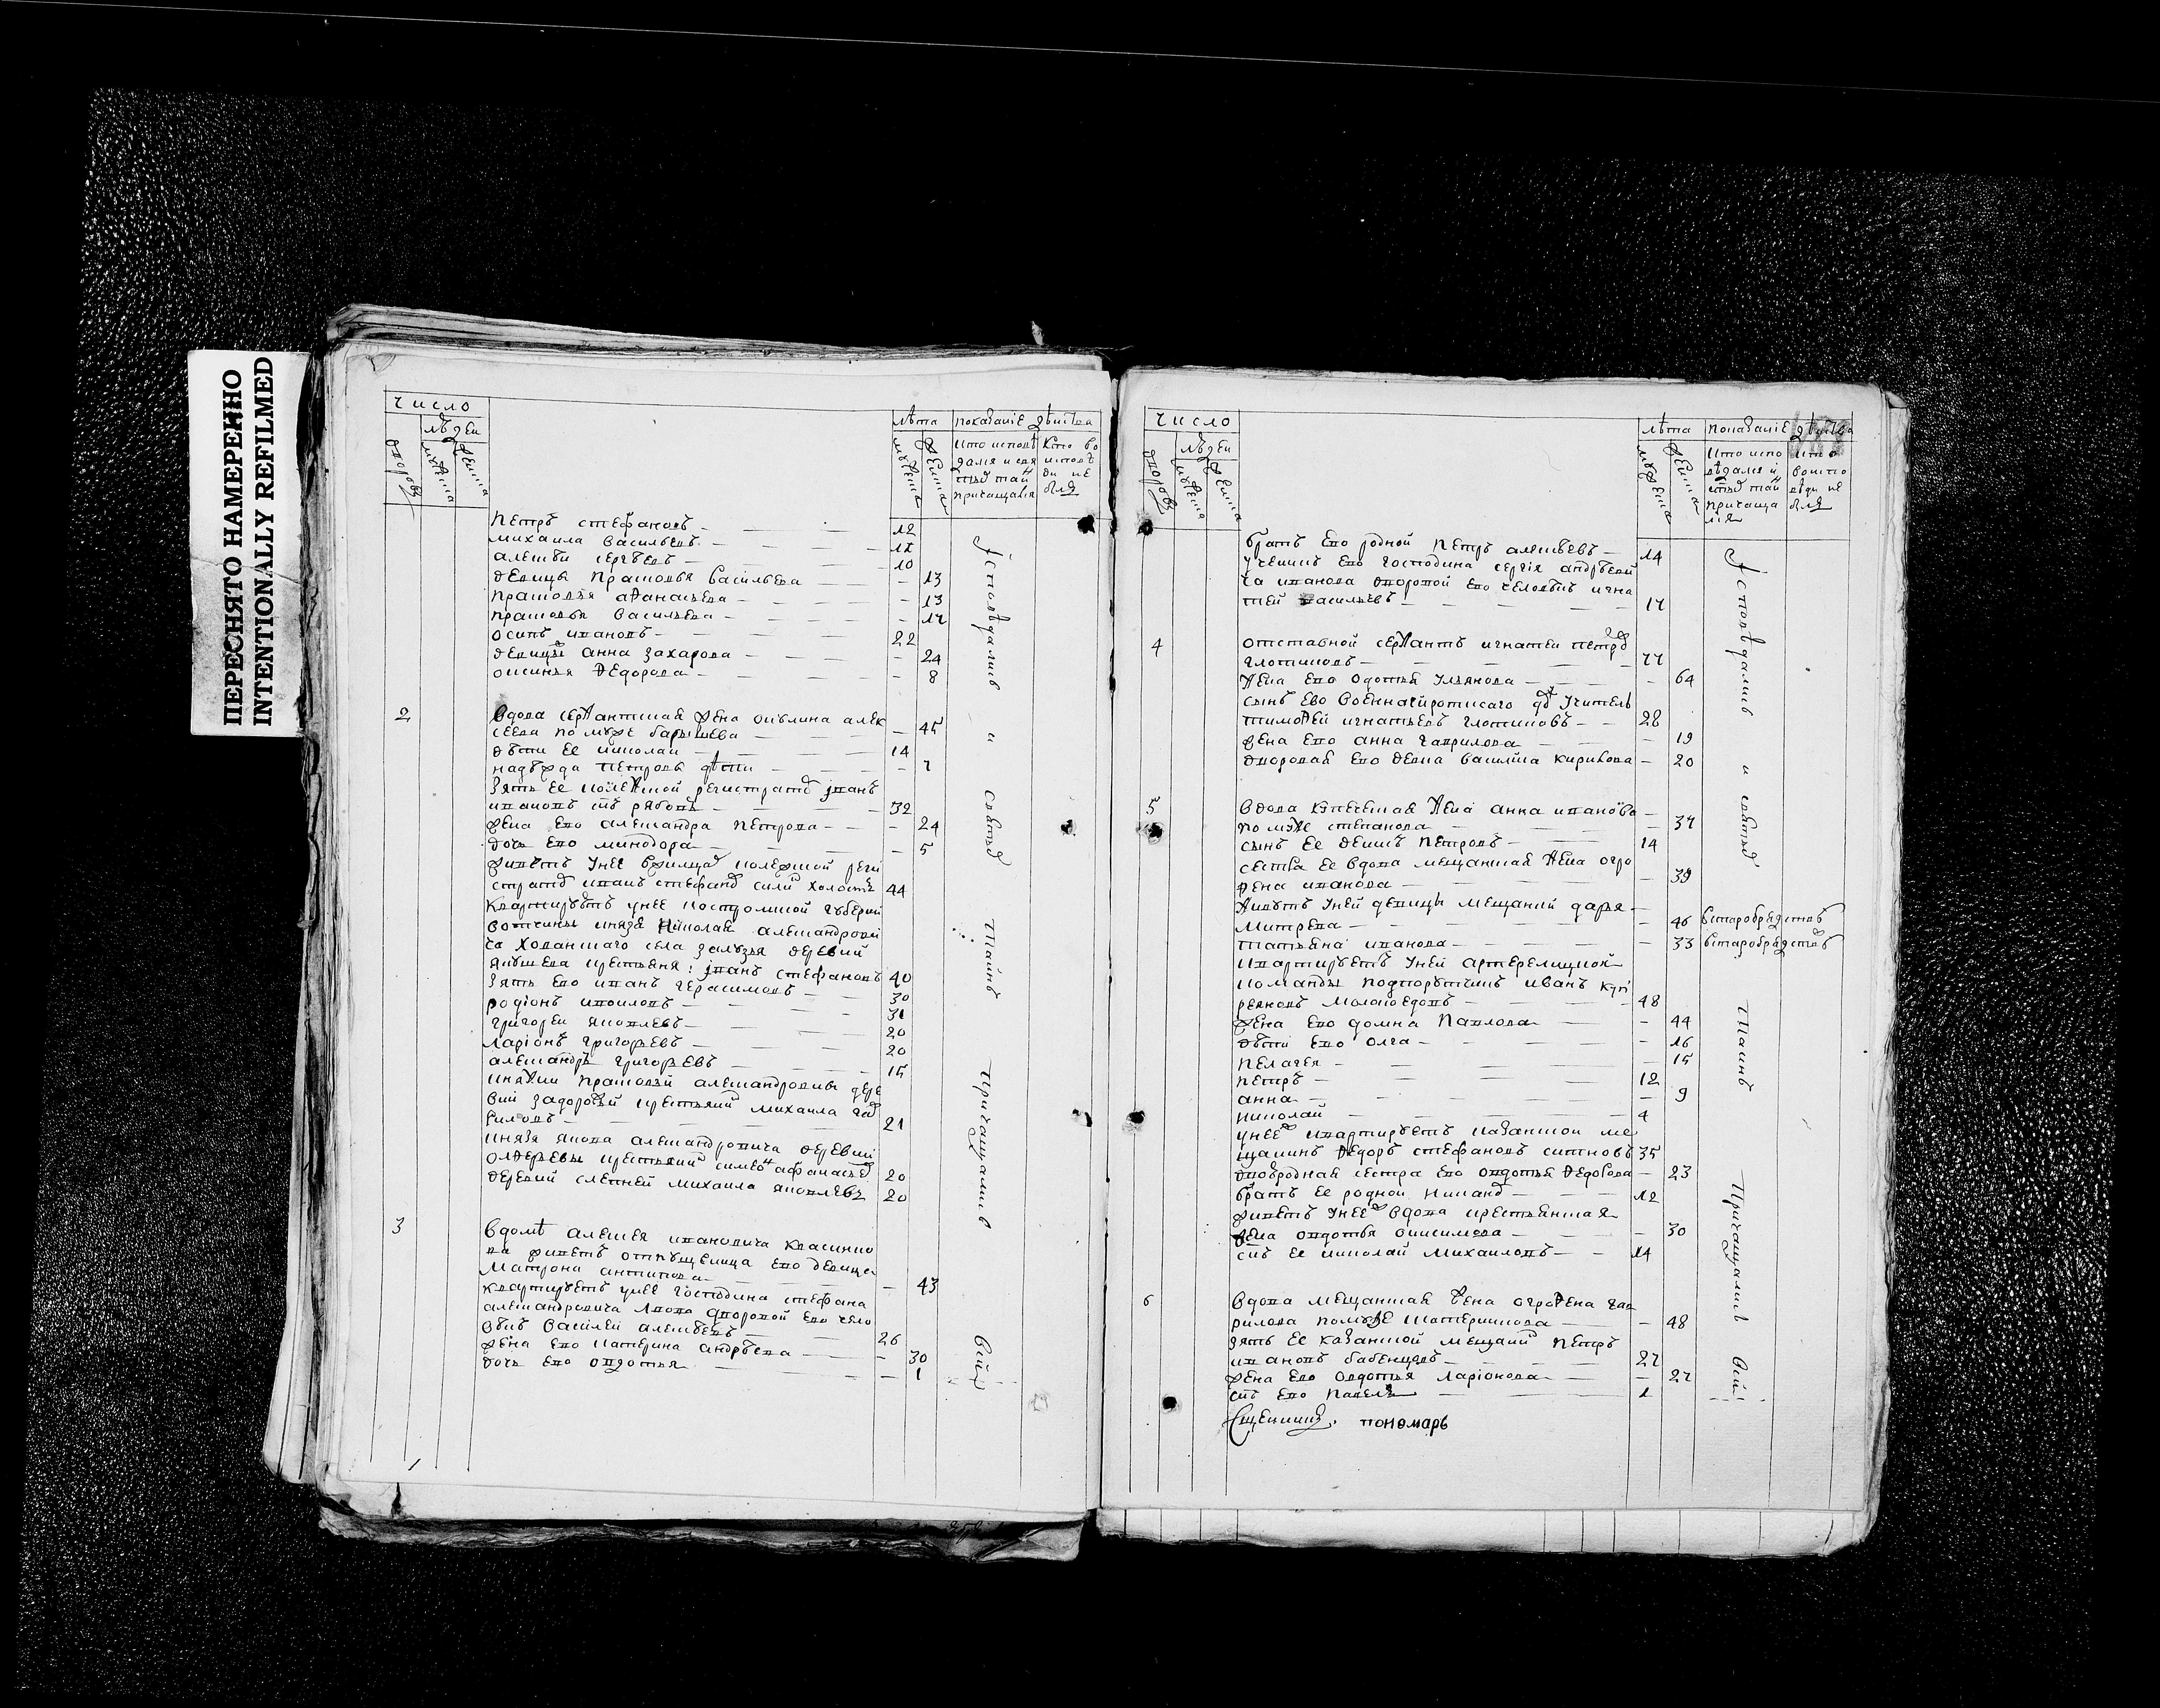 ПЕРЕСНЯТО НАМЕРЕННО
INTENTIONALLY REFILMED
число
лѣта показаніе дѣйства
людеи
дворовъ
мужеска
женска
мужеска
женска
кто исповѣ
дался и свя
тыхъ таи
причащался
кто во
исповѣ
ди не
былъ
петръ стефановъ 12
михаила васильевъ
алексѣи сергѣевъ 10
девицы прасковья васильева 13
прасковья афанасьева 13
прасковья васильева 17
осипъ ивановъ 22
девицы анна захарова 24
ѳедорова 8
2
вдова сержантская жена алек
сеева по муже 45
дѣти ее николаи 14
надѣжда петровы дѣти 7
зять ее регистраторъ іванъ
ивановъ сынъ рябовъ 32
жена ево александра петрова 24
дочь ево минодора 5
живетъ у нее реги
страторъ иванъ холостъ 44
квартируетъ у нее костромской губерніи
вотчины князя николая александрови
ча хованскаго села деревни
крестьяне: іванъ стефановъ 40
зять ево иванъ герасимовъ 30
родіонъ 31
григореи яковлевъ 20
ларіонъ григорьевъ 20
александръ григорьевъ 15
княжни прасковьи александровны дере
вни крестьянинъ михаила гав
риловъ 21
князя якова александровича деревни
крестьянинъ афанасьевъ 20
деревни михаила яковлевъ 20
3
в домѣ алексея ивановича
ва живетъ отпущеница ево девица
матрона антипова 43
квартируетъ у нее господина стефана
александровича дворовой ево чело
вѣкъ василеи алексѣевъ 26
жена ево катерина андрѣева 30
дочь ево авдотья 1
Ісповѣдались и святыхъ таинъ причащались всѣ
число
лѣта показаніе дѣйства
людеи
дворовъ
мужеска
женска
мужеска
женска
кто испо
вѣдался и
святыхъ таи
причаща
лся
кто
во испо
вѣди не
былъ
братъ ево родной петръ алексѣевъ 14
у господина сергія андрѣеви
ча иванова дворовой ево человѣкъ игна
теи васильевъ 17
4
отставной сержантъ игнатеи петровъ
глотиковъ 77
жена ево овдотья ульянова 64
сынъ ево учитель
тимофеи игнатьевъ глотиковъ 28
жена ево анна гаврилова 19
дворовая ево девка василиса кирилова 20
5
вдова купеческая жена анна иванова
по муже степанова 37
сынъ ее денисъ петровъ 14
сестра ее вдова мещанская жена огро
фена иванова 39
живутъ у ней девицы мещанки дарья
митрева 46 в старобрядствѣ
татьяна иванова 33 в старобрядствѣ
квартируетъ у ней
команды подпорутчикъ иванъ купр
реяновъ 48
жена ево домна павлова 44
дѣти ево олга 16
пелагея 15
петръ 12
анна 9
николаи 4
у нее квартируетъ казанской ме
щанинъ федоръ стефановъ ситновъ 35
двоюродная сестра ево овдотья федорова 23
братъ ее родной 12
живетъ у нее вдова крестьянская
жена овдотья онисимова 30
сынъ ее николаи михаиловъ 14
6
вдова мещанская жена огрофена гав
рилова по муже 48
зять ее казанской мещанинъ петръ
ивановъ бабенцовъ 27
жена ево овдотья ларіонова 27
сынъ ево павелъ 1
Ісповѣдались и святыхъ таинъ причащались всѣ
священникъ. пономарь